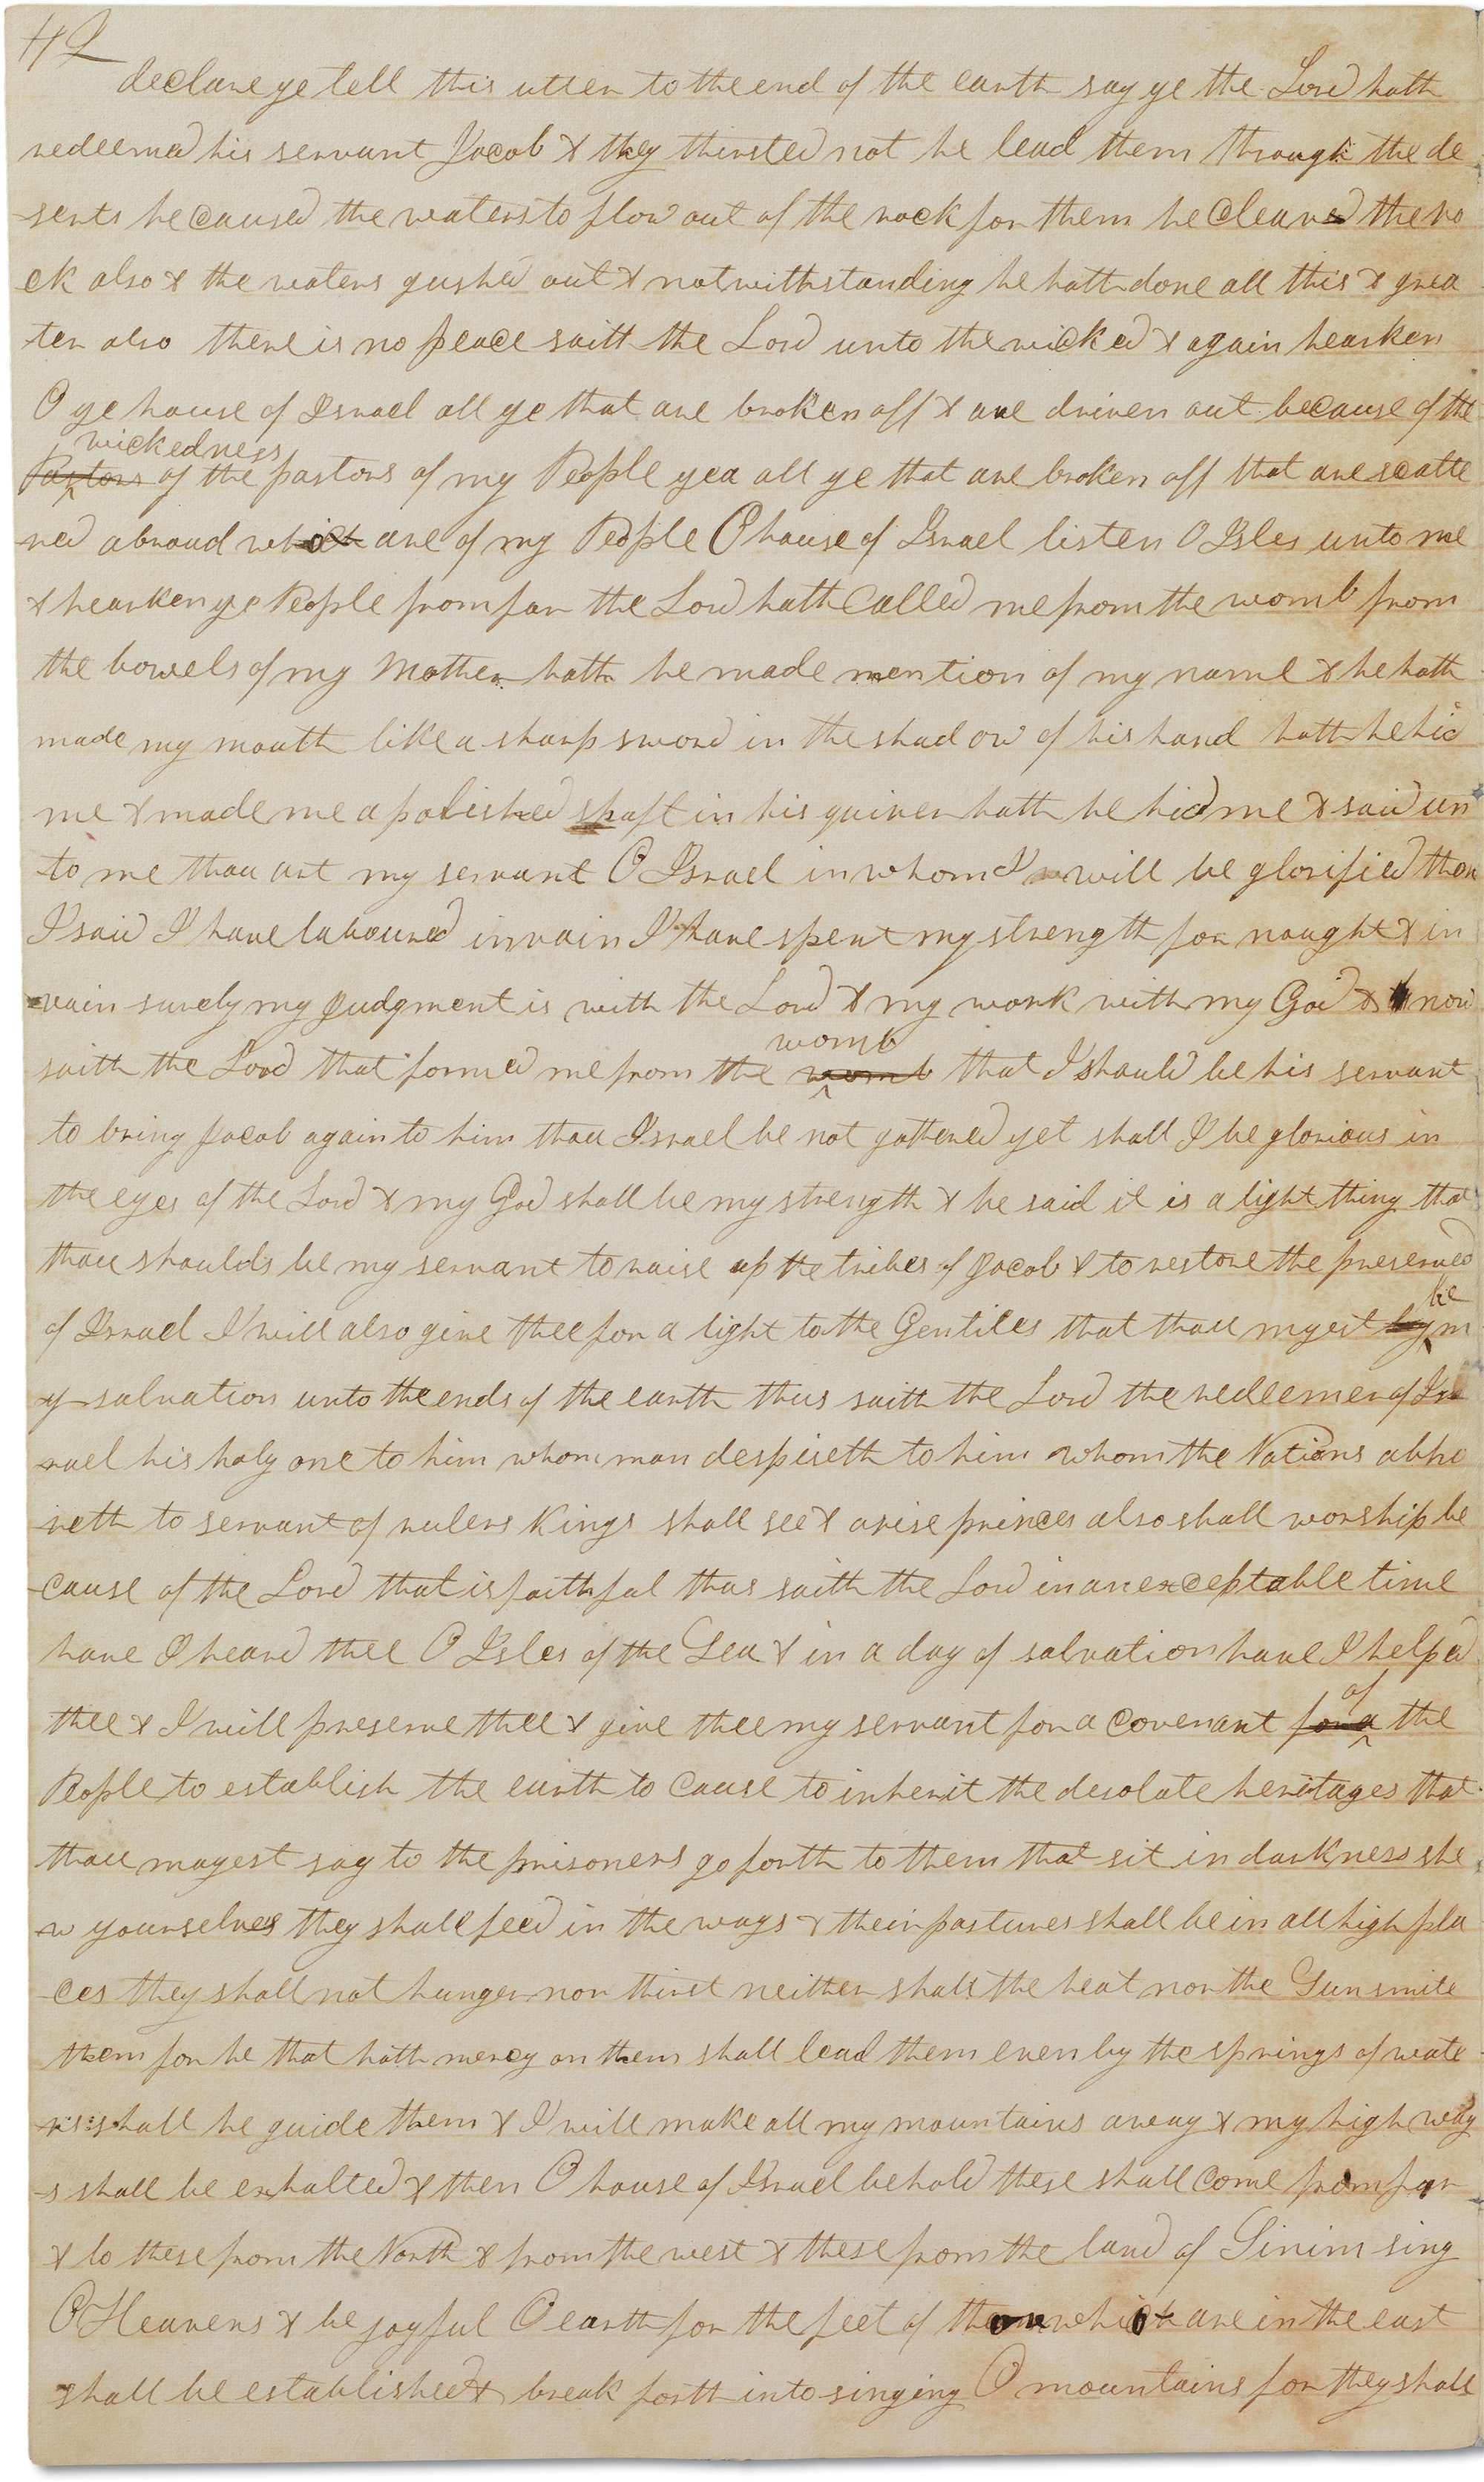 42
declare ye tell this utter to the end of the earth say ye the Lord hath
redeemed his servant Jacob & they thirsted not he lead them through the de
-serts he caused the waters to flow out of the rock for them he cleaved the ro
ck also & the waters gushed out & notwithstanding he hath done all this & grea
ter also there is no peace saith the Lord unto the wicked & again hearken
O ye house of Israel all ye that are broken off & are driven out because of the
wickedness
Pastors of the pastors of my People yea all ye that are broken off that are scatte
red abroad which are of my People O house of Israel listen O Isles unto me
& hearken ye People from far the Lord hath called me from the womb from
the bowels of my Mother hath he made mention of my name & he hath
made my mouth like a sharp sword in the shadow of his hand hath he hid
me & made me a polished shaft in his quiver hath he hid me & said un
to me thou art my servant O Israel in whom I will be glorified then
I said I have laboured in vain I have spent my strength for naught & in
vain surely my Judgment is with the Lord & my work with my God & now
womb
saith the Lord that formed me from the womb that I should be his servant
to bring Jacob again to him thou Israel be not gathered yet shall I be glorious in
the eyes of the Lord & my God shall be my strength & he said it is a light thing that
thou shoulds be my servant to raise up the tribes of Jacob & to restore the preserved
be
of Israel I will also give thee for a light to the Gentiles that thou myest by m
y salvation unto the ends of the earth thus saith the Lord the redeemer of Is
rael his holy one to him whom man despiseth to him whom the Nations abho
reth to servant of rulers Kings shall see & arise princes also shall worship be
cause of the Lord that is faithful thus saith the Lord in an exceptable time
have I heard thee O Isles of the Sea & in a day of salvation have I helped
of
thee & I will preserve thee & give thee my servant for a covenant for a the
People to establish the earth to cause to inherit the desolate heritages that
thou mayest say to the prisoners go forth to them that sit in darkness she
w yourselves they shall feed in the ways & their pastures shall be in all high pla
ces they shall not hunger nor thirst neither shall the heat nor the Sun smite
them for he that hath mercy on them shall lead them even by the springs of wate
rs shall he guide them & I will make all my mountains away & my high way
s shall be exhalted & then O house of Israel behold these shall come from far
& lo these from the North & from the west & these from the land of Sinim sing
O Heavens & be joyful O earth for the feet of them which are in the east
shall be established & break forth into singing O mountains for they shall